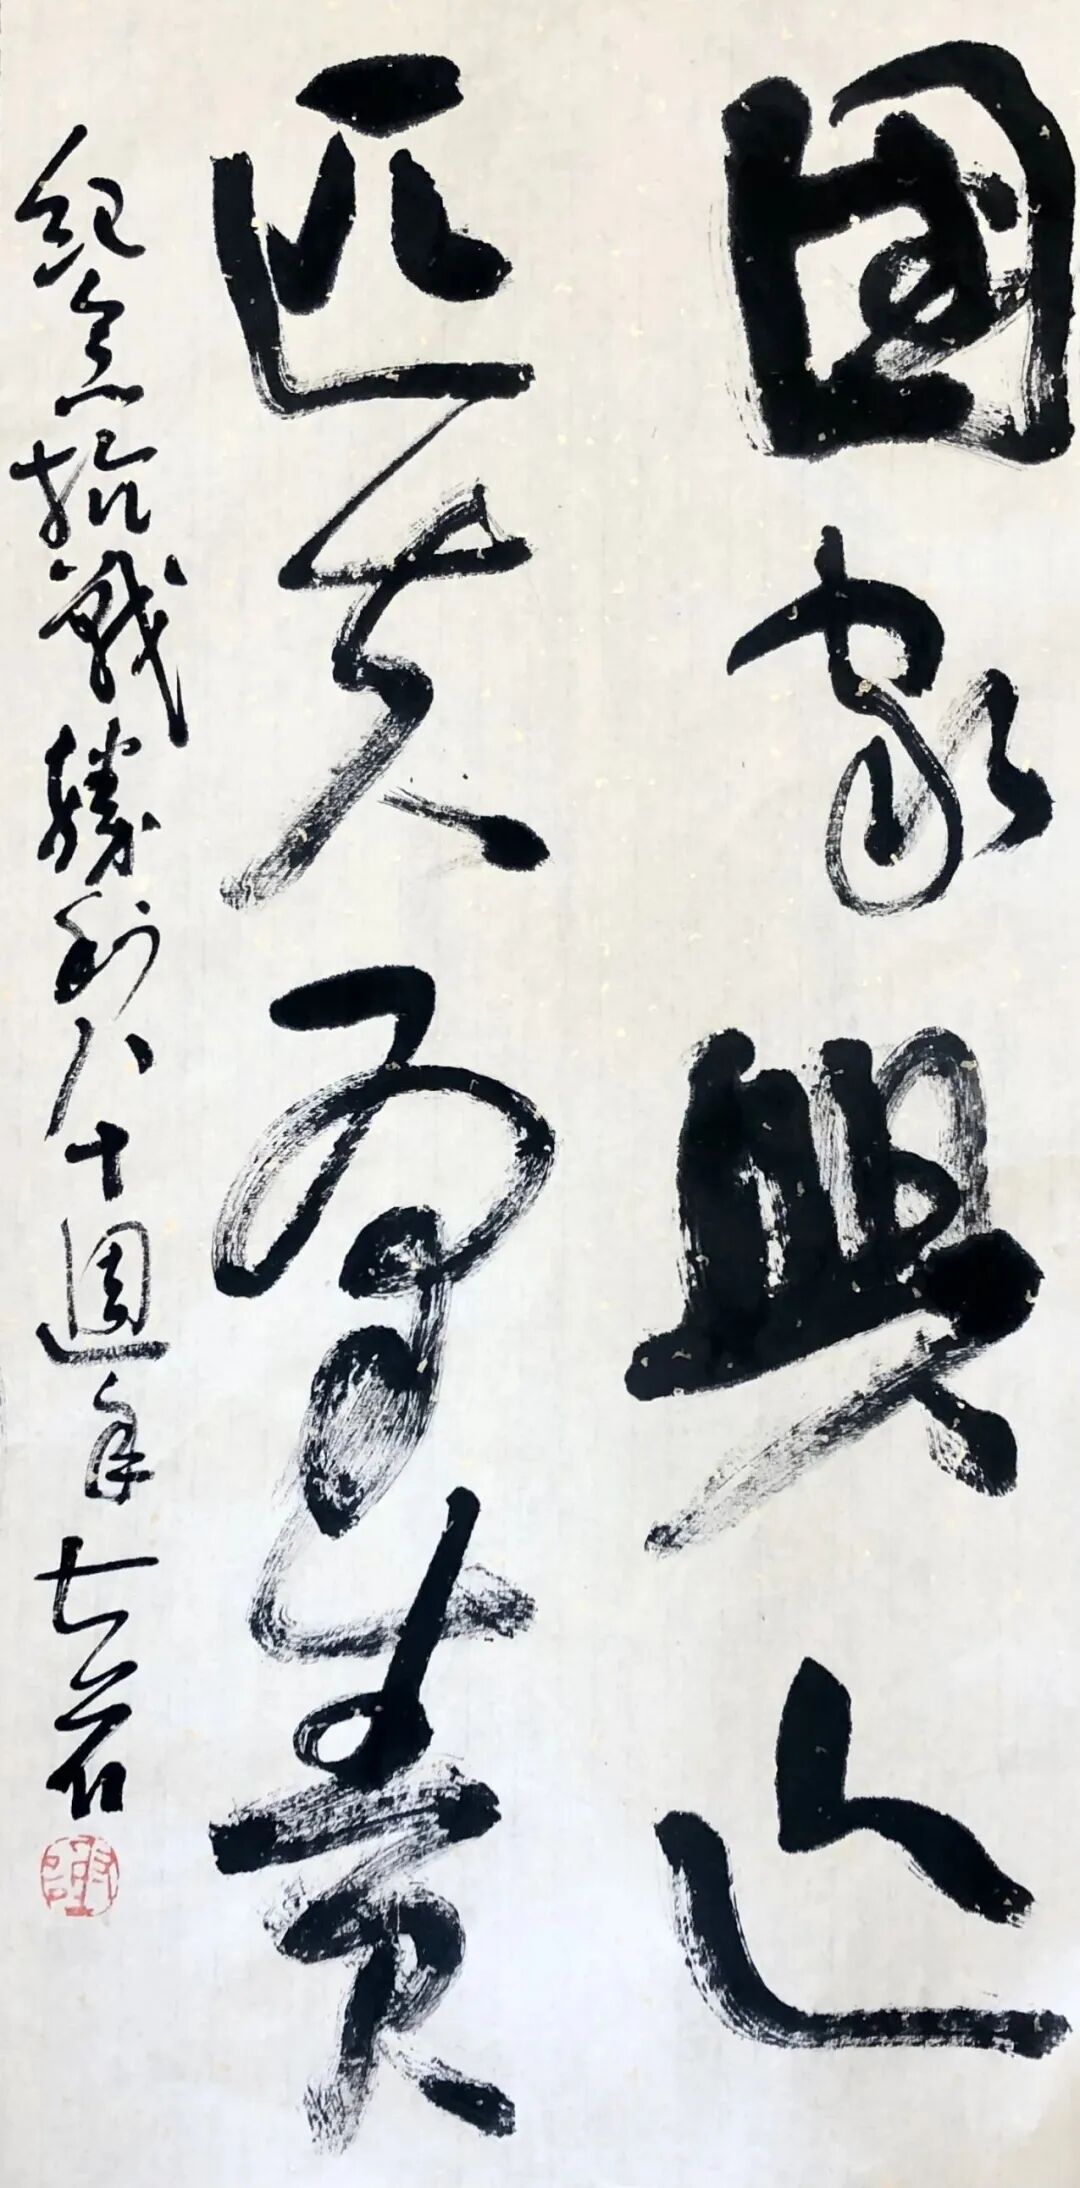 國家興亡
匹夫有責
紀念抗戰勝利八十週年 七